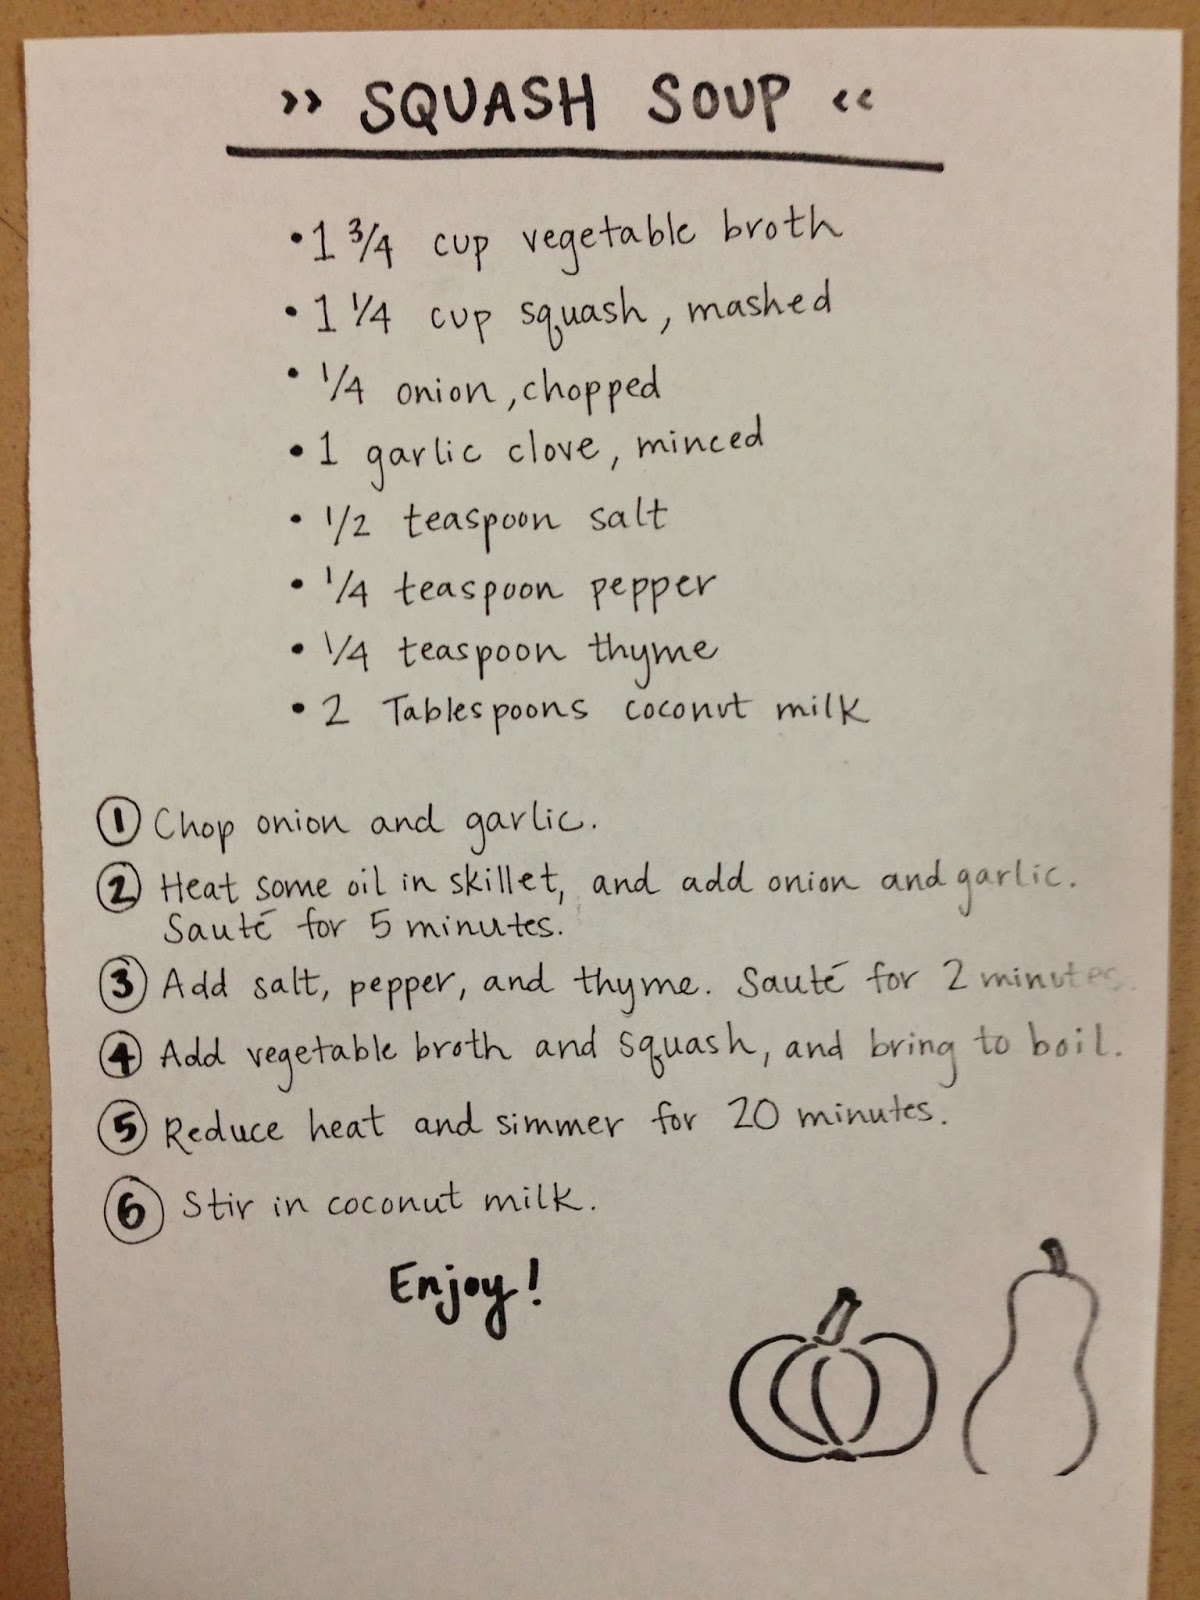 >> SQUASH SOUP <<
• 1 3/4 cup vegetable broth
• 1 1/4 cup squash, mashed
• 1/4 onion, chopped
• 1 garlic clove, minced
• 1/2 teaspoon salt
• 1/4 teaspoon pepper
• 1/4 teaspoon thyme
• 2 Tablespoons coconut milk
① Chop onion and garlic.
② Heat some oil in skillet, and add onion and garlic.
Sauté for 5 minutes.
③ Add salt, pepper, and thyme. Sauté for 2 minutes.
④ Add vegetable broth and squash, and bring to boil.
⑤ Reduce heat and simmer for 20 minutes.
⑥ Stir in coconut milk.
Enjoy!